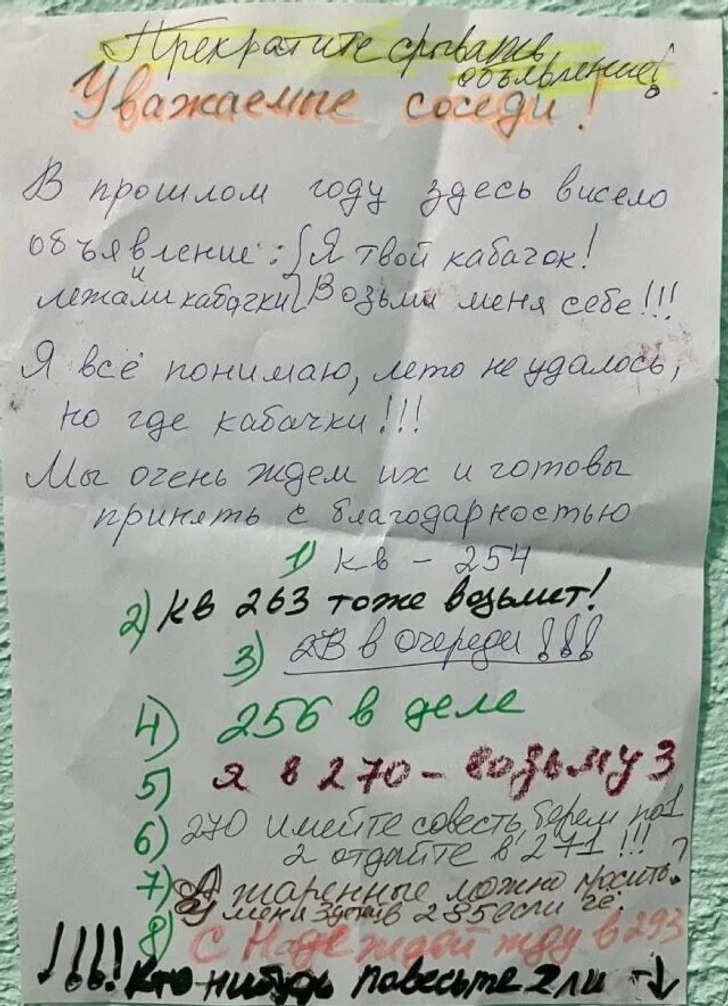 Прекратите срывать
объявление!
Уважаемые соседи!
В прошлом году здесь висело
объявление: Я твой кабачок!
и
лежали кабачки Возьми меня себе!!!
Я всё понимаю, лето не удалось,
но где кабачки!!!
Мы очень ждем их и готовы
принять с благодарностью
1) кв - 254
2) кв 263 тоже возьмет!
3) в очереди!!!
4) 256 в деле
5) Я в 270 - возьму 3
6) 270 имейте совесть, берем по 1
2 отдайте в 271!!!
7) А жаренные можно просить?
У меня 3 в 285 если чё.
8) С Надеждой жду в 293
!!!! Кто нибудь повесьте 2 ли ↓